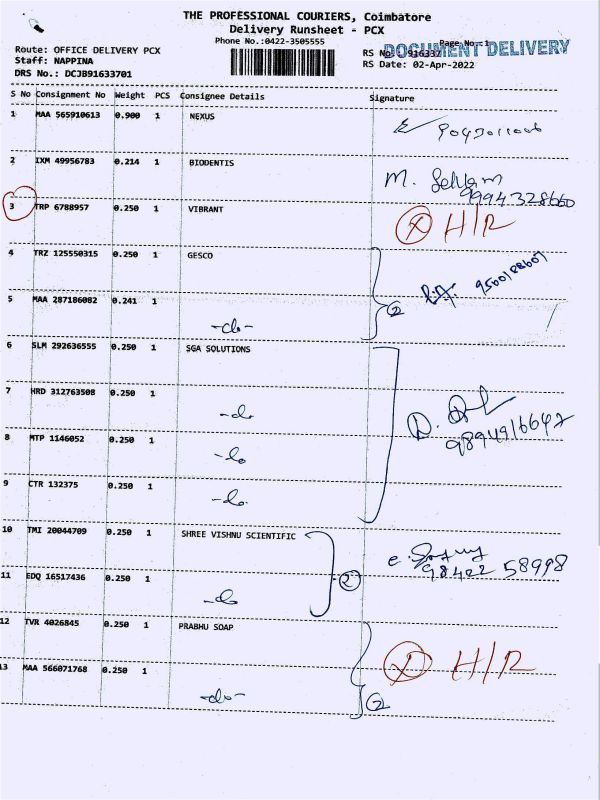 THE PROFESSIONAL COURIERS, Coimbatore
Delivery Runsheet - PCX
Phone No.:0422-3505555
Page No.:1
Route: OFFICE DELIVERY PCX
RS No.: 916337
DOCUMENT DELIVERY
Staff: NAPPINA
RS Date: 02-Apr-2022
DRS No.: DCJB91633701
S No Consignment No Weight PCS Consignee Details Signature
1 MAA 565910613 0.900 1 NEXUS
2 IXM 49956783 0.214 1 BIODENTIS
M. Selvam
9994328660
3 TRP 6788957 0.250 1 VIBRANT
X H/R
4 TRZ 125550315 0.250 1 GESCO
5 MAA 287186082 0.241 1
-do- 2
6 SLM 292636555 0.250 1 SGA SOLUTIONS
7 HRD 312763508 0.250 1
-do-
8 MTP 1146052 0.250 1
-do-
9 CTR 132375 0.250 1
-do-
D.
9894916647
10 TMI 20044709 0.250 1 SHREE VISHNU SCIENTIFIC
98422 58998
11 EDQ 16517436 0.250 1
-do- 2
12 TVR 4026845 0.250 1 PRABHU SOAP
X H/R
13 MAA 566071768 0.250 1
-do- 2